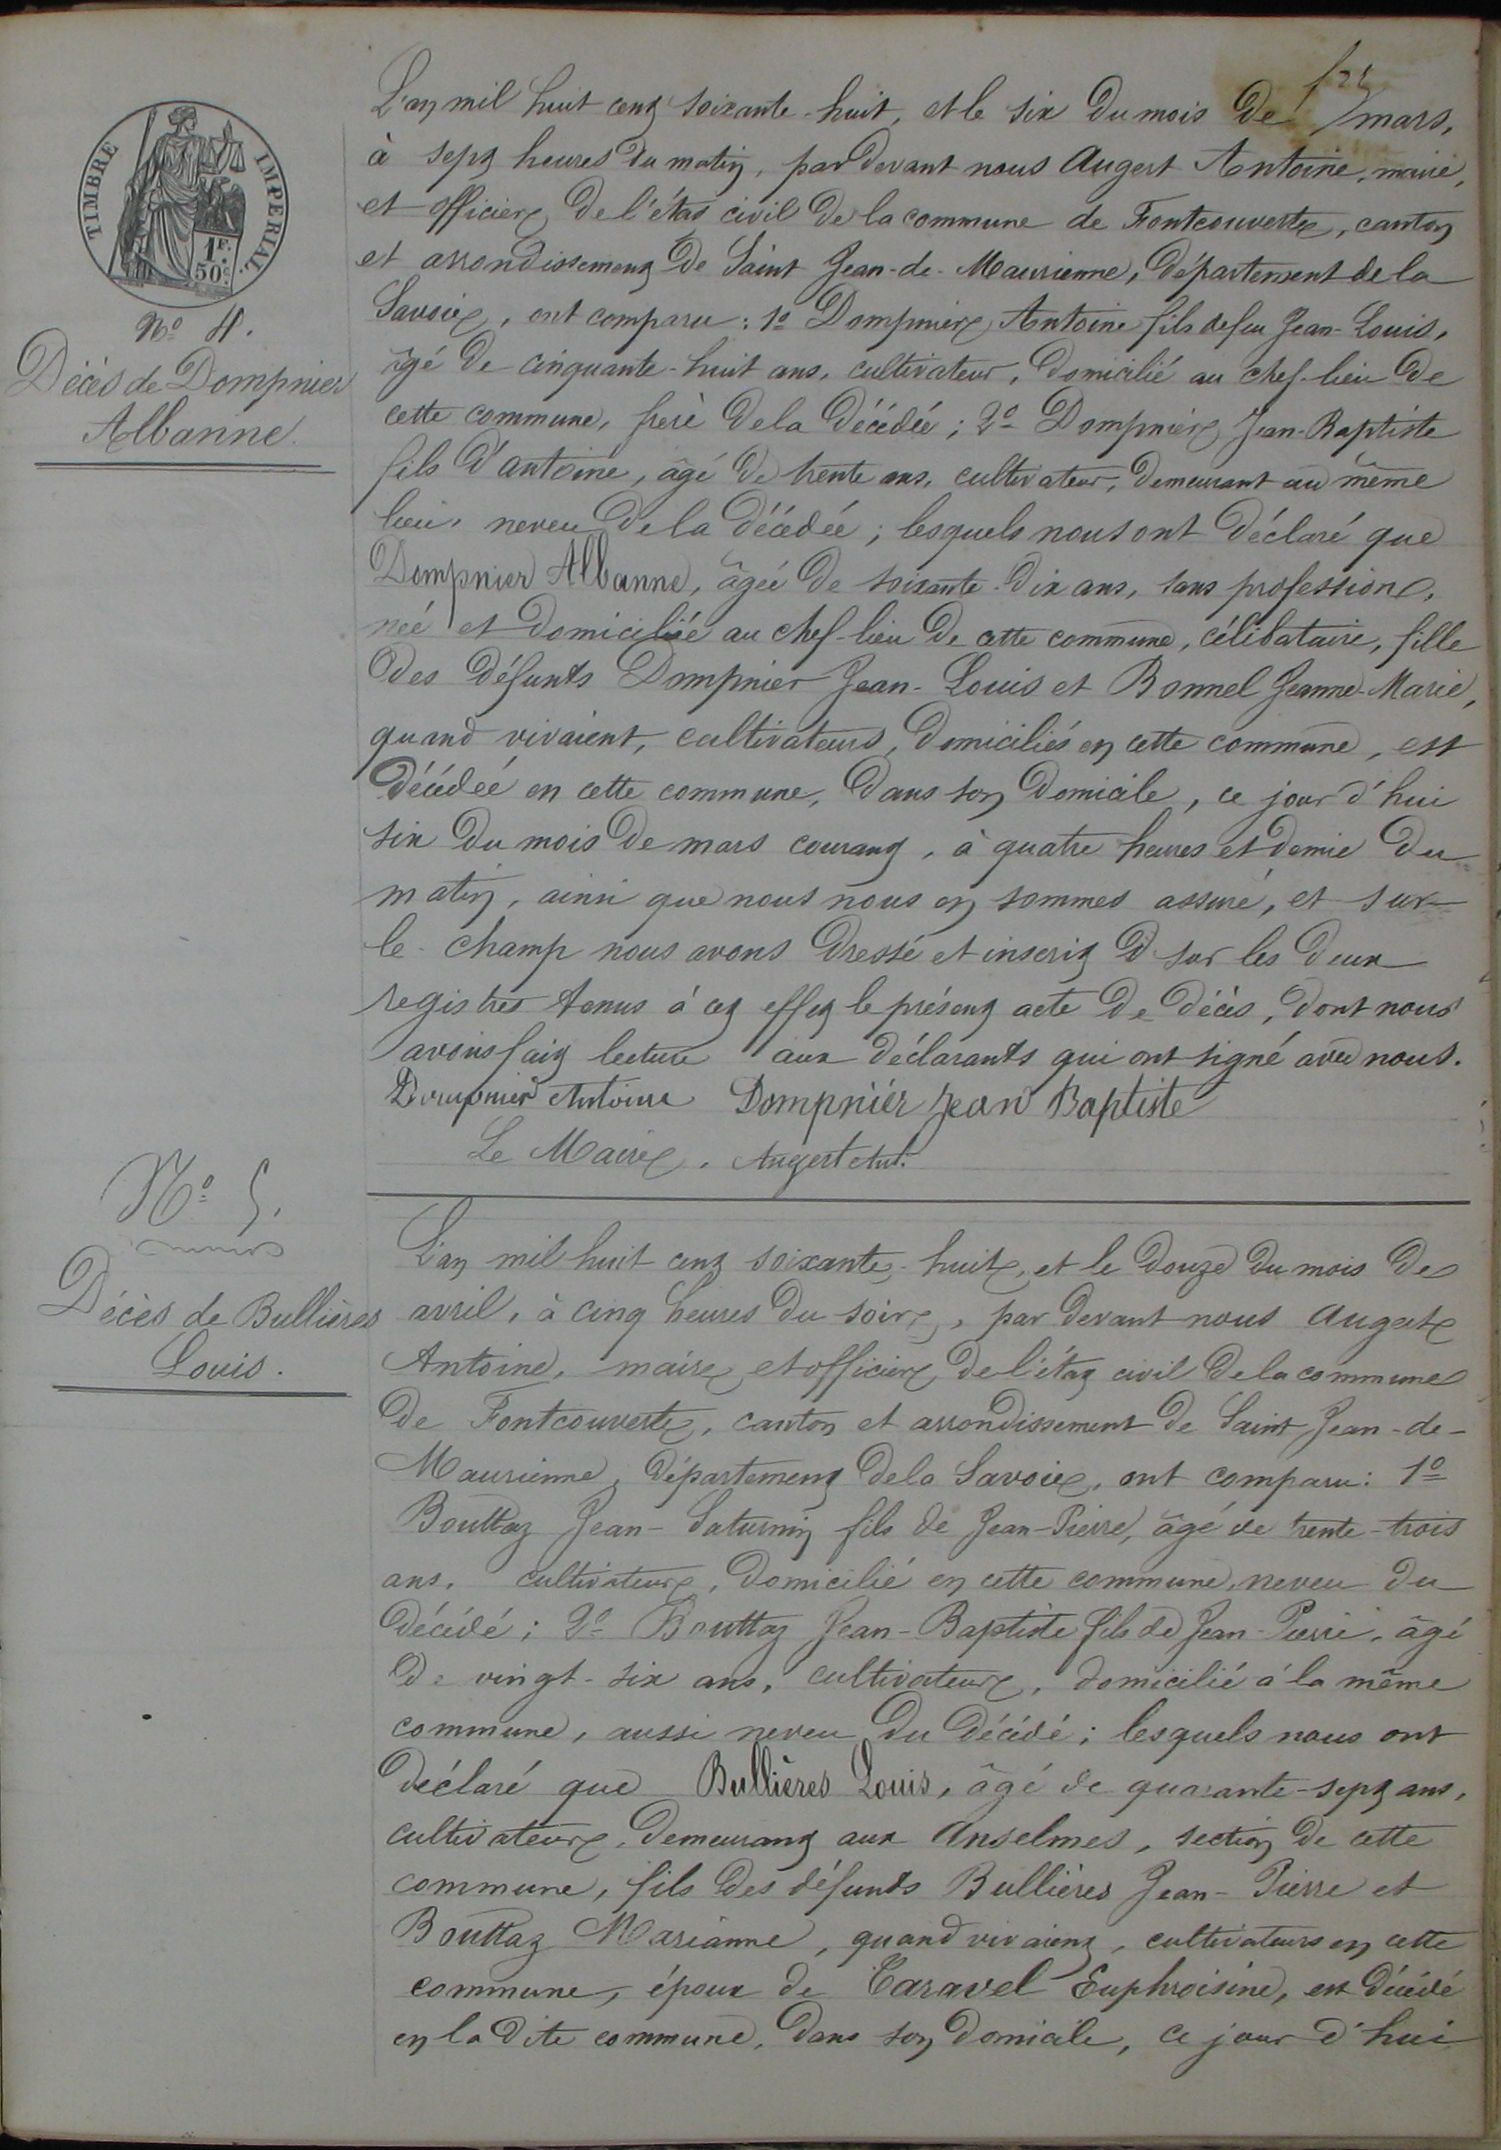 TIMBRE IMPERIAL.
1F.
50c.
No 4.
Décès de Dompnier
Albanne.
L'an mil huit cent soixante-huit, et le six du mois de mars,
à sept heures du matin, par devant nous Augert Antoine, maire,
et officier de l'état civil de la commune de Fontcouverte, canton
et arrondissement de Saint Jean-de-Maurienne, département de la
Savoie, ont comparu: 1o Dompnier Antoine fils de feu Jean-Louis,
âgé de cinquante-huit ans, cultivateur, domicilié au chef-lieu de
cette commune, frère de la décédée; 2o Dompnier Jean-Baptiste
fils d'antoine, âgé de trente ans, cultivateur, demeurant au même
lieu, neveu de la décédée; lesquels nous ont déclaré que
Dompnier Albanne, âgée de soixante-dix ans, sans profession,
née et domiciliée au chef-lieu de cette commune, célibataire, fille
des défunts Dompnier Jean-Louis et Bonnel Jeanne-Marie,
quand vivaient, cultivateurs, domiciliés en cette commune, est
décédée en cette commune, dans son domicile, ce jour d'hui
six du mois de mars courant, à quatre heures et demie du
matin, ainsi que nous nous en sommes assuré, et sur-
le-champ nous avons dressé et inscrit sur les deux
registres tenus à cet effet le présent acte de décès, dont nous
avons fait lecture aux déclarants qui ont signé avec nous.
Dompnier Antoine Dompnier Jean Baptiste
Le Maire. Augert Ant.
No 5.
Décès de Bullières
Louis.
L'an mil huit cent soixante-huit, et le douze du mois de
avril, à cinq heures du soir, par devant nous Augert
Antoine, maire et officier de l'état civil de la commune
de Fontcouverte, canton et arrondissement de Saint Jean-de-
Maurienne, département de la Savoie, ont comparu: 1o
Bouttaz Jean-Saturnin fils de Jean-Pierre, âgé de trente-trois
ans, cultivateur, domicilié en cette commune, neveu du
décédé; 2o Bouttaz Jean-Baptiste fils de Jean-Pierre, âgé
de vingt-six ans, cultivateur, domicilié à la même
commune, aussi neveu du décédé; lesquels nous ont
déclaré que Bullières Louis, âgé de quarante-sept ans,
cultivateur, demeurant aux Anselmes, section de cette
commune, fils des défunts Bullières Jean-Pierre et
Bouttaz Marianne, quand vivaient, cultivateurs en cette
commune, époux de Taravel Euphroisine, est décédé
en la dite commune, dans son domicile, ce jour d'hui